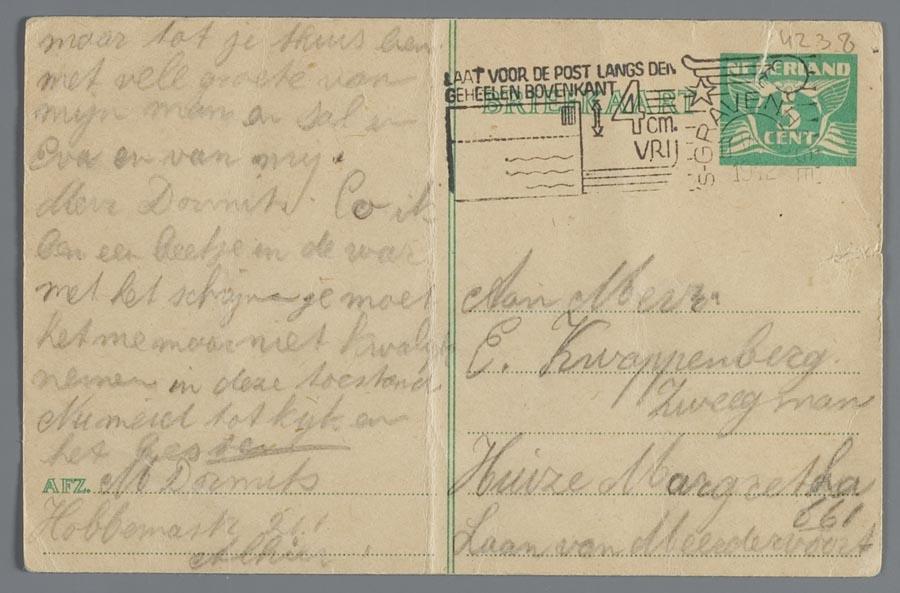 maar tot je thuis ben
met vele groete van
mijn man en Sal en
Eva en van mij.
Mevr Dormits. Co ik
ben een beetje in de war
met het schrijven je moet
het me maar niet kwalijk
nemen in deze toestand
Nu meid tot kijk en
het beste
AFZ. M Dormits
Hobbemastr
LAAT VOOR DE POST LANGS DEN
GEHEELEN BOVENKANT
4 cm.
VRIJ
BRIEFKAART
'S-GRAVEN
4238
NEDERLAND
CENT
Aan Mevr.
E. Kwappenberg
Zweegman
Huize Margretha
661
Laan van Meerdervoort